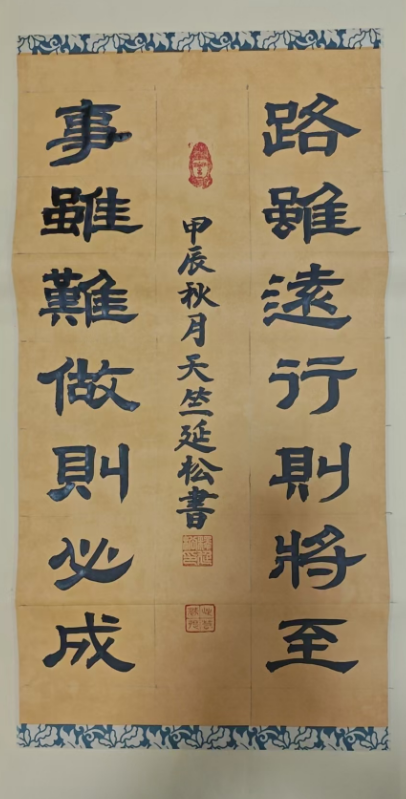 路雖遠行則將至
事雖難做則必成
甲辰秋月天竺延松書